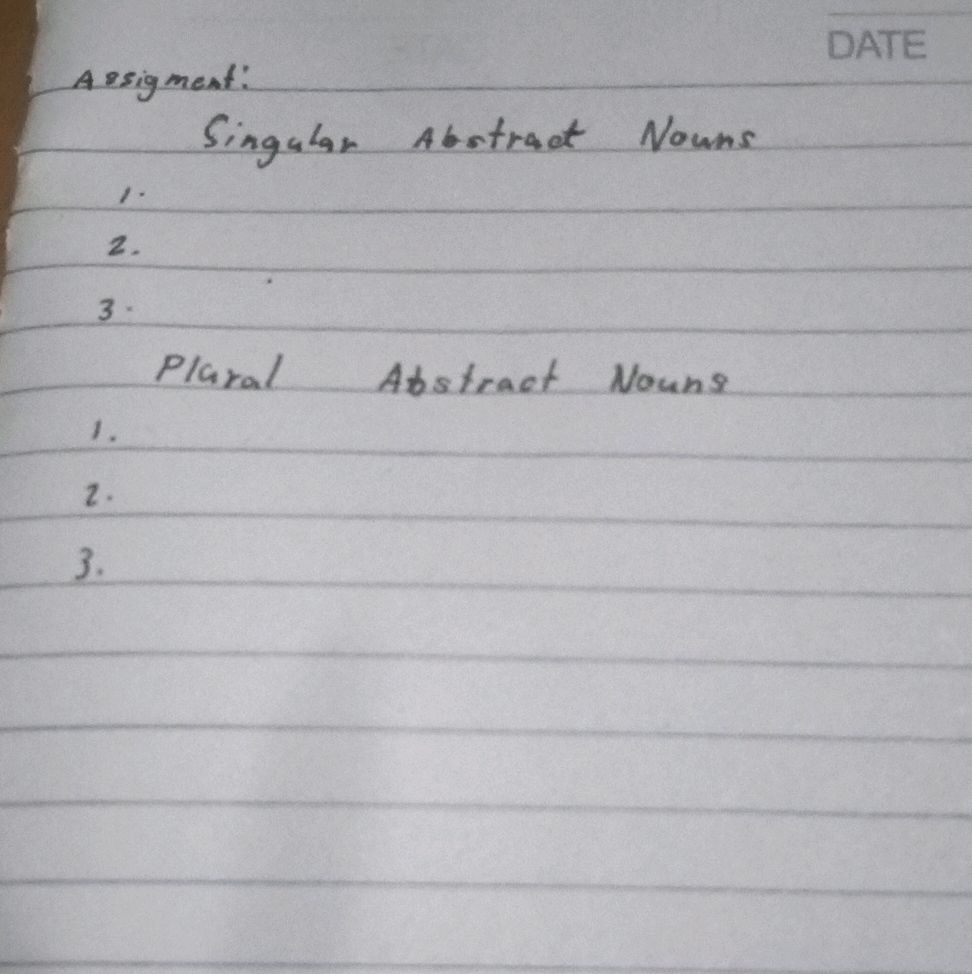 DATE
Assigment:
Singular Abstract Nouns
1.
2.
3.
Plural Abstract Nouns
1.
2.
3.